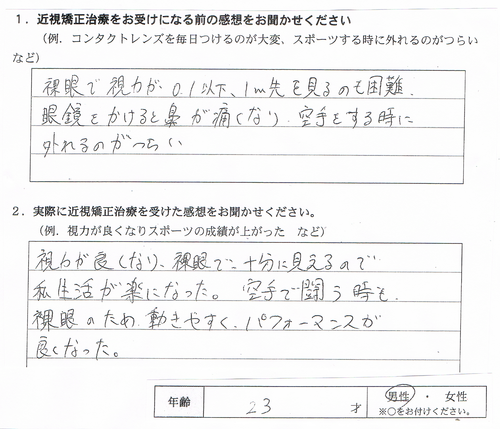 １．近視矯正治療をお受けになる前の感想をお聞かせください
（例．コンタクトレンズを毎日つけるのが大変、スポーツする時に外れるのがつらい
など）
裸眼で視力が0.1以下、1m先を見るのも困難.
眼鏡をかけると鼻が痛くなり、空手をする時に
外れるのがつらい
２．実際に近視矯正治療を受けた感想をお聞かせください。
（例．視力が良くなりスポーツの成績が上がった　など）
視力が良くなり、裸眼で十分に見えるので
私生活が楽になった。空手で闘う時も、
裸眼のため動きやすく、パフォーマンスが
良くなった。
年齢　23　才　男性・女性
※○をお付けください。